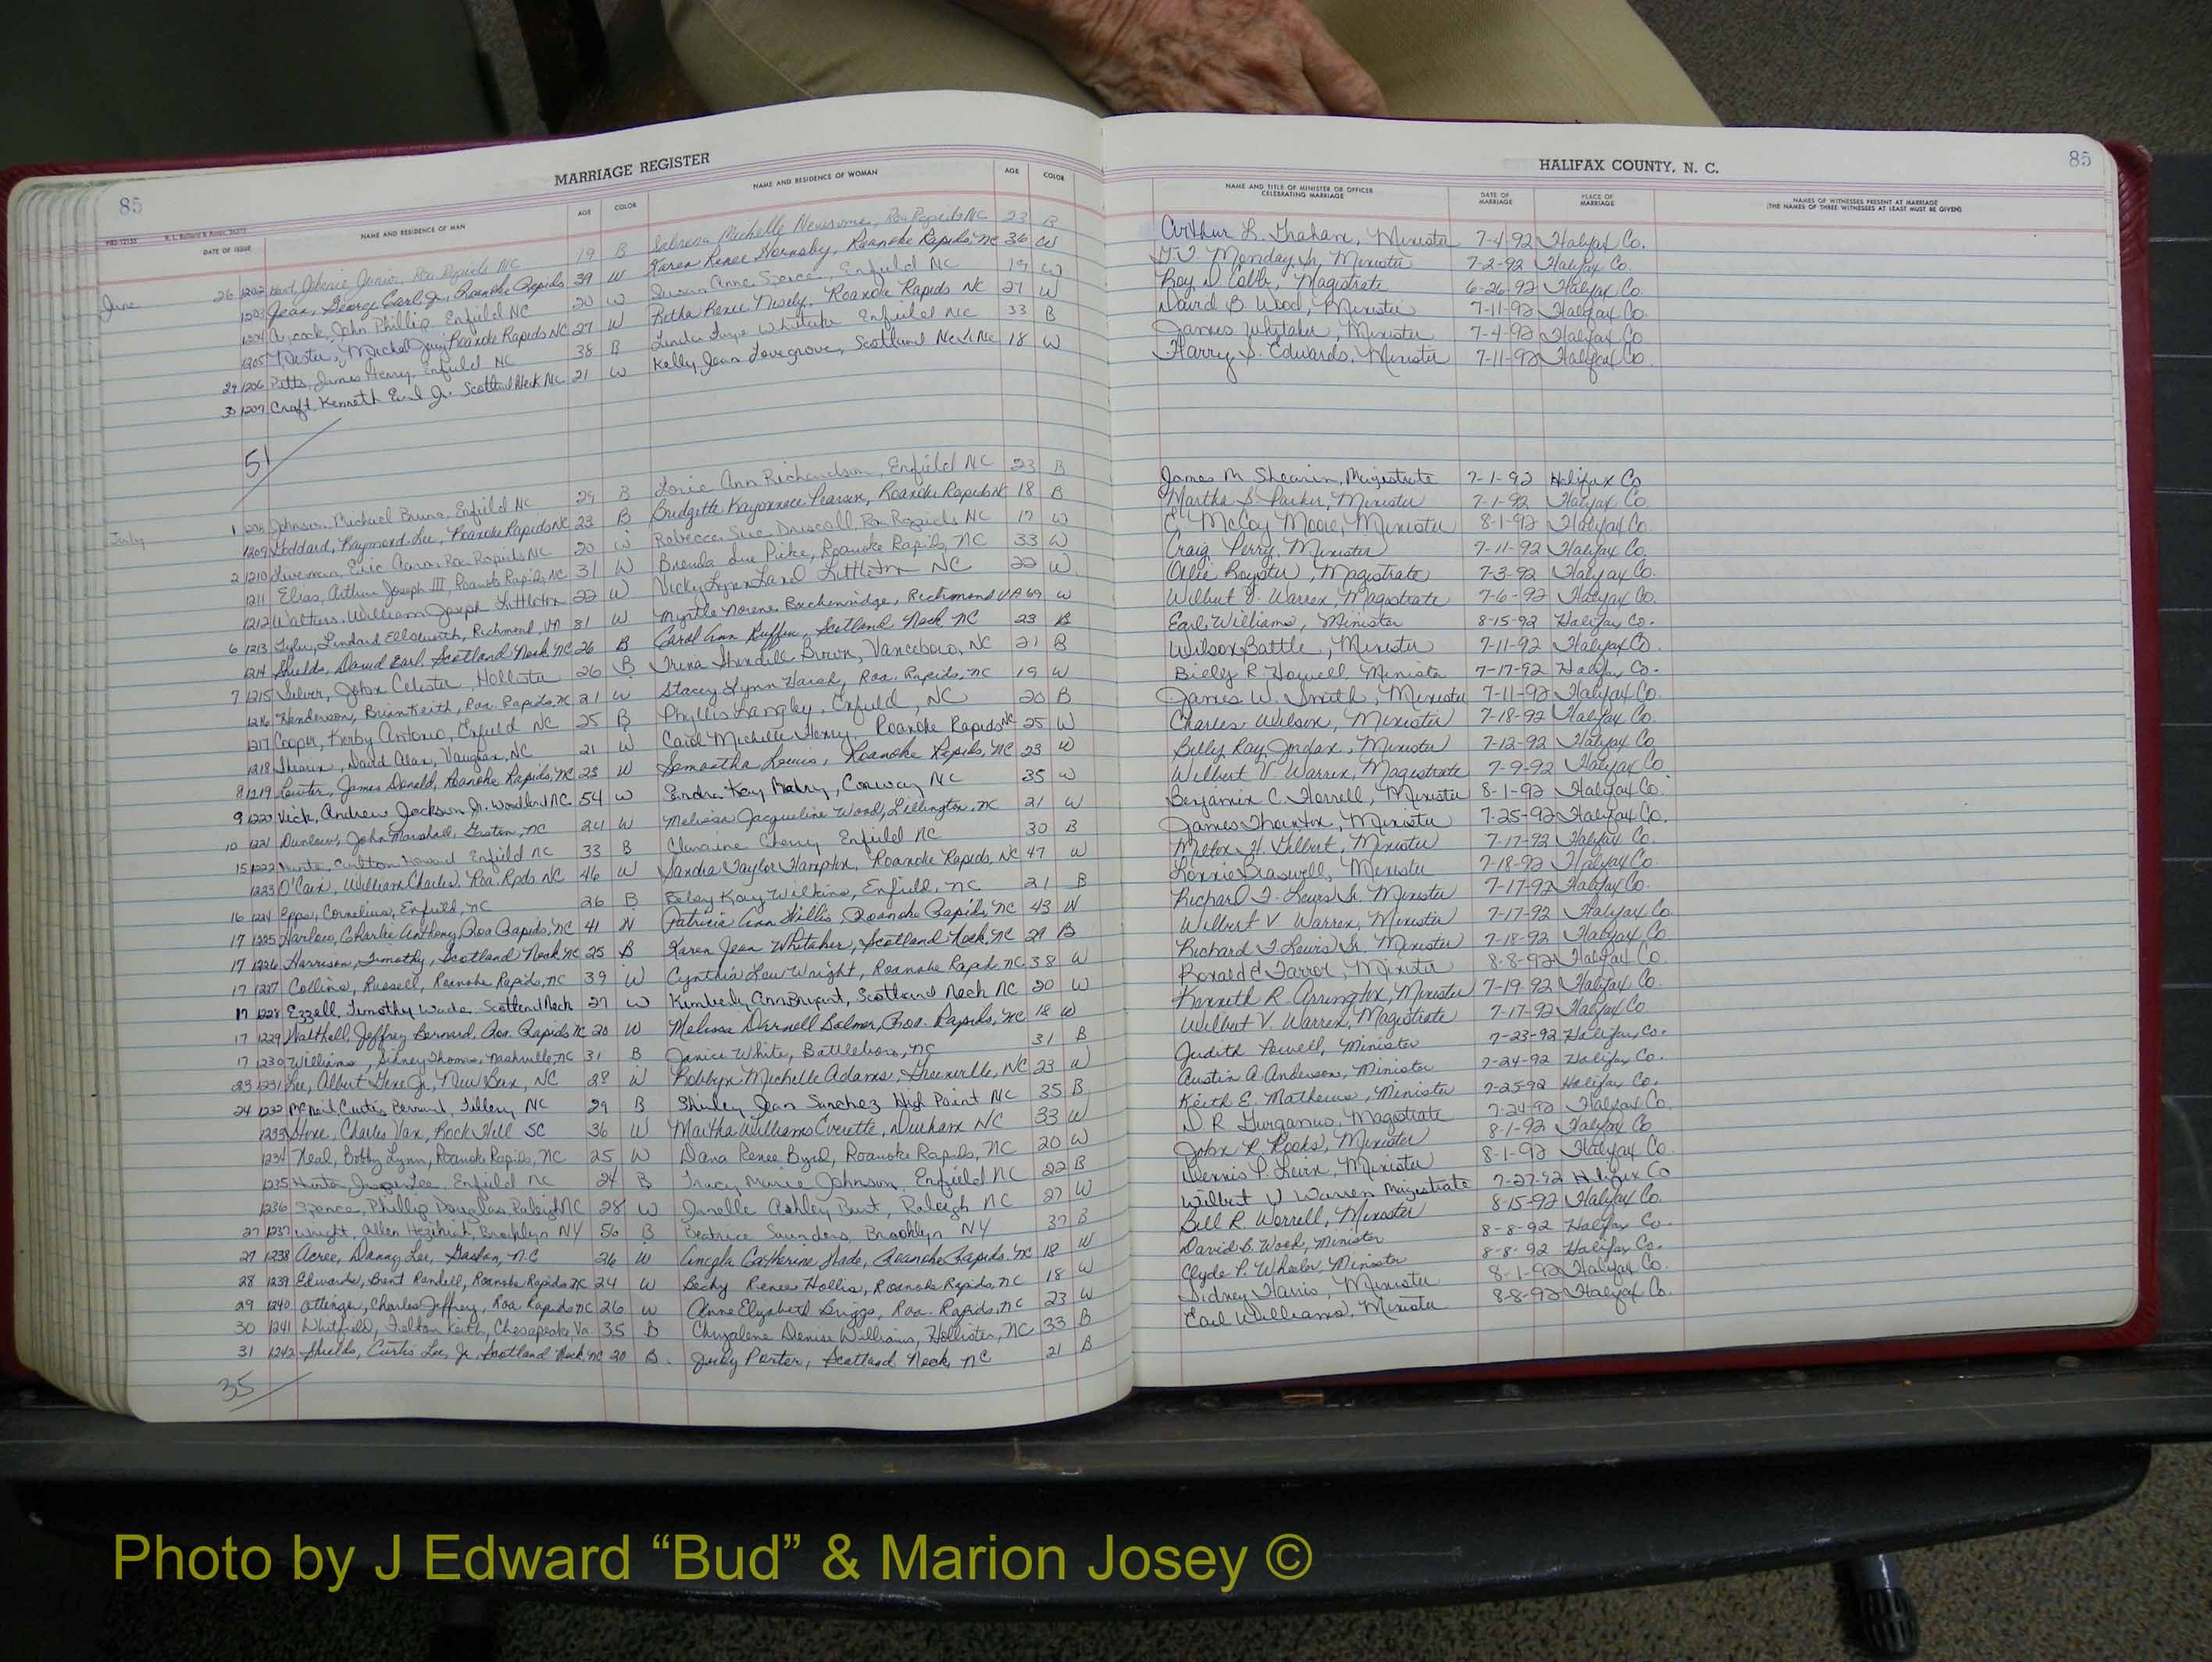 85 MARRIAGE REGISTER
DATE OF ISSUE NAME AND RESIDENCE OF MAN AGE COLOR NAME AND RESIDENCE OF WOMAN AGE COLOR
June 26 1202 Johnie Junior, Roa Rapids NC 19 B Sabrina Michelle Newsome, Roa Rapids NC 23 B
1203 Jean, George Earl Jr., Roanoke Rapids 39 W Karen Renee Hornsby, Roanoke Rapids, NC 36 W
1204 Aycock, John Phillip, Enfield NC 20 W Susan Anne Enfield NC 19 W
1205 Michael Roanoke Rapids NC 27 W Retha Renee Nisely, Roanoke Rapids NC 27 W
29 1206 Pitts, James Henry, Enfield NC 38 B Linda Faye Whitaker Enfield NC 33 B
30 1207 Craft, Kenneth Earl Jr. Scotland Neck NC 21 W Kelly Jean Lovegrove, Scotland Neck NC 18 W
51
July 1 1208 Johnson, Michael Bruno, Enfield NC 29 B Lorie Ann Richardson, Enfield NC 23 B
1209 Goddard, Raymond Lee, Roanoke Rapids NC 23 B Bridgette Pearson, Roanoke Rapids NC 18 B
2 1210 Liverman, Eric Aaron Roa Rapids NC 20 W Rebecca Sue Driscoll, Roa Rapids NC 17 W
1211 Elias, Arthur Joseph III, Roanoke Rapids, NC 31 W Brenda Sue Pike, Roanoke Rapids, NC 33 W
1212 Walters, William Joseph Littleton 22 W Vicky Lynn Land Littleton NC 22 W
6 1213 Tyler, Lindard Ellsworth, Richmond, VA 81 W Myrtle Norene Richmond VA 69 W
1214 Shields, David Earl, Scotland Neck NC 26 B Carol Ann Ruffin, Scotland Neck NC 23 B
7 1215 Silver, John Celester Hollister 26 B Trena Brown, Vanceboro, NC 21 B
1216 Henderson, Brian Keith, Roa. Rapids, NC 21 W Stacey Lynn Roa. Rapids, NC 19 W
1217 Cooper, Kerby Antonio, Enfield NC 25 B Phyllis Langley, Enfield, NC 20 B
1218 Shearin, David Alan, Vaughan, NC 21 W Carol Michelle Henry, Roanoke Rapids NC 25 W
8 1219 James Donald, Roanoke Rapids, NC 23 W Samantha Lewis, Roanoke Rapids, NC 23 W
9 1220 Vick, Andrew Jackson Jr. Woodland NC. 54 W Kay Conway NC 35 W
10 1221 Dunlow, John Marshall, Gaston, NC 24 W Melissa Jacqueline Wood, Lillington, NC 21 W
15 1222 Carlton Howard Enfield NC 33 B Cherry Enfield NC 30 B
1223 O'Cain, William Charles, Roa. Rpds NC 46 W Sandra Taylor Hampton, Roanoke Rapids, NC 47 W
16 1224 Epps, Cornelius, Enfield, NC 26 B Betsy Kay Wilkins, Enfield, NC 21 B
17 1225 Harlow, Charlie Anthony, Roa Rapids, NC 41 W Patricia Ann Willis, Roanoke Rapids, NC 43 W
17 1226 Harrison, Timothy, Scotland Neck NC 25 B Karen Jean Whitaker, Scotland Neck, NC 29 B
17 1227 Collins, Russell, Roanoke Rapids, NC 39 W Cynthia Lou Wright, Roanoke Rapid NC 38 W
17 1228 Ezzell, Timothy Wade, Scotland Neck 27 W Kimberly Ann Bryant, Scotland Neck NC 20 W
17 1229 Walthall, Jeffrey Bernard, Roa. Rapids NC 20 W Melissa Darnell Balmer, Roa. Rapids, NC 18 W
17 1230 Williams, Sidney Thomas, Nashville, NC 31 B Janice White, Battleboro, NC 31 B
23 1231 Lee, Albert Gene Jr., New Bern, NC 28 W Robbyn Michelle Adams, Greenville, NC 23 W
24 1232 McNeil, Curtis Bernard, Tillery, NC 29 B Shirley Jean Sanchez High Point NC 35 B
1233 Stone, Charles Van, Rock Hill SC 36 W Martha Williams Everette, Durham NC 33 W
1234 Neal, Bobby Lynn, Roanoke Rapids, NC 25 W Dana Renee Byrd, Roanoke Rapids, NC 20 W
1235 Lee, Enfield NC 24 B Tracy Marie Johnson, Enfield NC 22 B
1236 Spence, Phillip Douglas, Raleigh NC 28 W Janelle Ashley Burt, Raleigh NC 27 W
27 1237 Wright, Allen Hezikiah, Brooklyn NY 56 B Beatrice Saunders, Brooklyn NY 37 B
27 1238 Acree, Danny Lee, Gaston, N.C 26 W Angela Catherine Roanoke Rapids, NC 18 W
28 1239 Edwards, Brent Randell, Roanoke Rapids NC 24 W Becky Renee Hollis, Roanoke Rapids, NC 18 W
29 1240 Ottinger, Charles Jeffrey, Roa Rapids NC 26 W Anne Elizabeth Briggs, Roa. Rapids, NC 23 W
30 1241 Whitfield, Felton Keith, Chesapeake, Va. 35 B Chrystene Denise Williams, Hollister, NC 33 B
31 1242 Shields, Curtis Lee, Jr. Scotland Neck NC 20 B. Judy Porter, Scotland Neck, NC 21 B
35
HALIFAX COUNTY, N. C. 85
NAME AND TITLE OF MINISTER OR OFFICER CELEBRATING MARRIAGE DATE OF MARRIAGE PLACE OF MARRIAGE NAMES OF WITNESSES PRESENT AT MARRIAGE
(THE NAMES OF THREE WITNESSES AT LEAST MUST BE GIVEN)
Arthur L. Graham, Minister 7-4-92 Halifax Co.
Monday Jr, Minister 7-2-92 Halifax Co.
Roy D. Magistrate 6-26-92 Halifax Co.
David B. Wood, Minister 7-11-92 Halifax Co.
James Whitaker, Minister 7-4-92 Halifax Co.
Harry S. Edwards, Minister 7-11-92 Halifax Co
James M Shearin, Magistrate 7-1-92 Halifax Co
Martha S Parker, Minister 7-1-92 Halifax Co.
E. McCoy Moore, Minister 8-1-92 Halifax Co.
Craig Perry, Minister 7-11-92 Halifax Co.
Ollie Royster, Magistrate 7-3-92 Halifax Co.
Wilbert V. Warren, Magistrate 7-6-92 Halifax Co.
Earl Williams, Minister 8-15-92 Halifax Co.
Wilson Battle, Minister 7-11-92 Halifax Co.
Billy R. Howell, Minister 7-17-92 Halifax Co.
James W. Smith, Minister 7-11-92 Halifax Co.
Charles Wilson, Minister 7-18-92 Halifax Co.
Billy Ray Jordan, Minister 7-12-92 Halifax Co
Wilbert V. Warren, Magistrate 7-9-92 Halifax Co.
Benjamin C. Horrell, Minister 8-1-92 Halifax Co.
James Thornton, Minister 7-25-92 Halifax Co.
Milton H. Gilbert, Minister 7-17-92 Halifax Co.
Lonnie Braswell, Minister 7-18-92 Halifax Co.
Richard F. Lewis Sr. Minister 7-17-92 Halifax Co.
Wilbert V Warren, Minister 7-17-92 Halifax Co.
Richard F Lewis Sr. Minister 7-18-92 Halifax Co.
Ronald E Farror, Minister 8-8-92 Halifax Co.
Kenneth R. Arrington, Minister 7-19-92 Halifax Co.
Wilbert V. Warren, Magistrate 7-17-92 Halifax Co.
Judith Powell, Minister 7-23-92 Halifax Co.
Austin A. Anderson, Minister 7-24-92 Halifax Co.
Keith E. Mathews, Minister 7-25-92 Halifax Co.
D. R. Gurganus, Magistrate 7-24-92 Halifax Co.
John R. Rooks, Minister 8-1-92 Halifax Co
Dennis P. Levin, Minister 8-1-92 Halifax Co.
Wilbert V Warren Magistrate 7-27-92 Halifax Co
Bill R. Worrell, Minister 8-15-92 Halifax Co.
David B. Wood, Minister 8-8-92 Halifax Co.
Clyde P. Wheeler, Minister 8-8-92 Halifax Co.
Sidney Harris, Minister 8-1-92 Halifax Co.
Earl Williams, Minister 8-8-92 Halifax Co.
Photo by J Edward “Bud” & Marion Josey ©